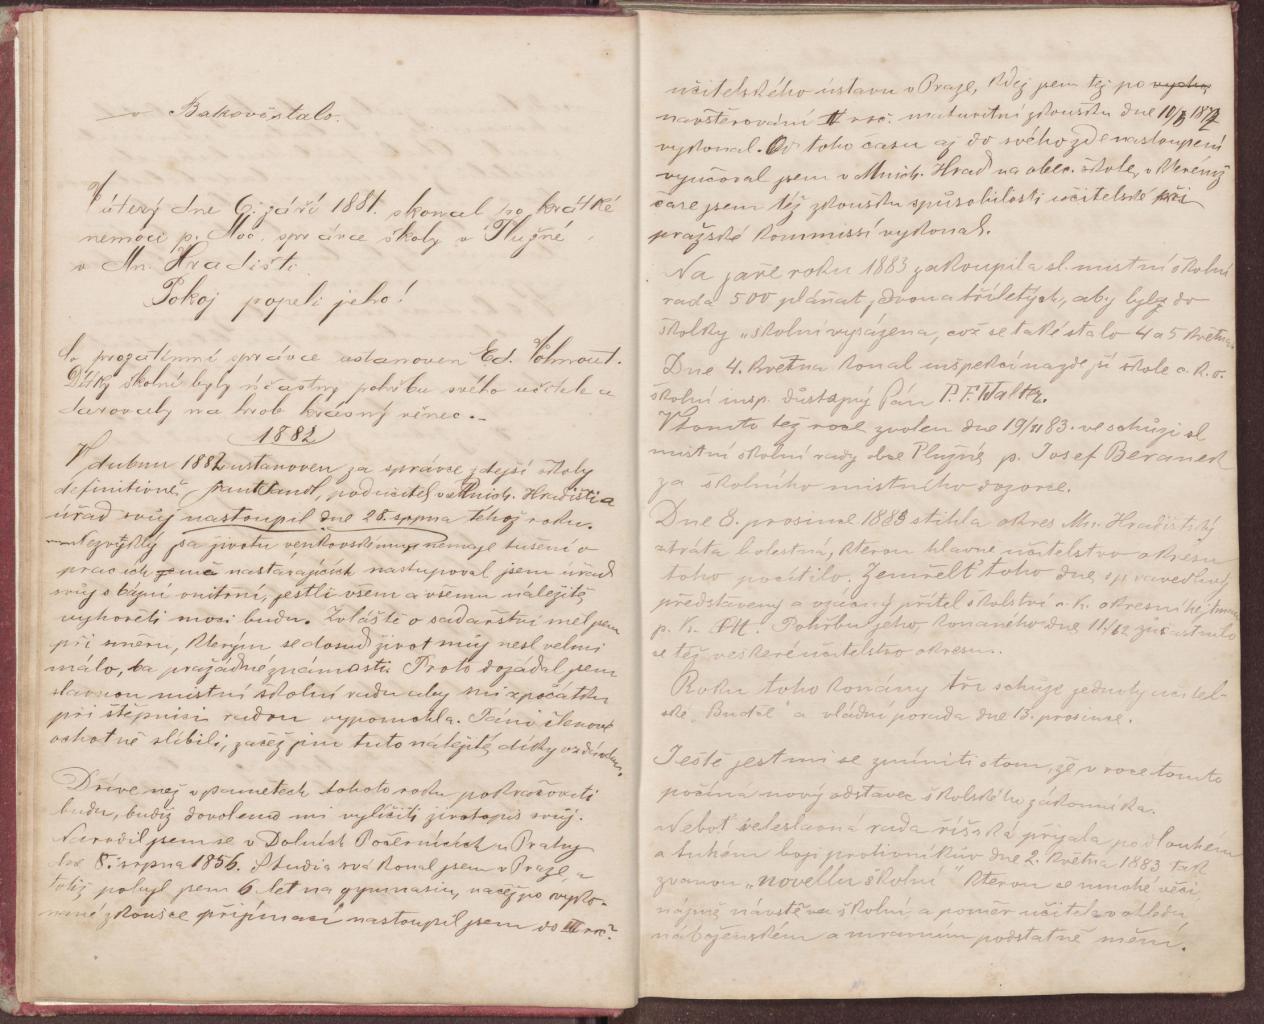 v Bakově stalo.
V úterý dne 6. září 1881. skonal po krátké
nemoci p. Moc. správce školy v Plužné
v Mn. Hradišti
Pokoj popeli jeho!
Za prozatímní správce ustanoven Ed. Volmout.
Dítky školní byly účastny pohřbu svého učitele a
darovaly na hrob krásný věnec. –
1882
V dubnu 1882 ustanoven za správce zdejší školy
definitivně, podučitel v Mnich. Hradišti a
úřad svůj nastoupil dne 28. srpna téhož roku.
jsa životu venkovskému nemaje tušení o
pracích nastávajících nastupoval jsem úřad
svůj s bázní vnitřní, jestli všem a všemu náležitě
vyhověti moci budu. Zvláště o sadařství měl jsem
při směru, kterým se dosud život můj nesl velmi
málo, ba pražádné známosti. Proto dožádal jsem
slavnou místní školní radu aby mi zpočátku
při štěpnici radou vypomohla. Páni členové
ochotně slíbili, začež jim tuto náležité díky vzdávám.
Dříve než v pamětech tohoto roku pokračovati
budu, budiž dovoleno mi vylíčiti životopis svůj.
Narodil jsem se v Dolních Počernicích u Prahy
dne 8. srpna 1856. Studia svá konal jsem v Praze, a
totiž pobyl jsem 6 let na gymnasiu, načež po vyko-
nané zkoušce přijímací nastoupil jsem do III roč.
učitelského ústavu v Praze, kdež jsem též po
navštěvování II roč. maturitní zkoušku dne 10/
vykonal. Od toho času až do svého zde nastoupení
vyučoval jsem v Mnich. Hrad. na obec. škole, v kterémž
čase jsem též zkoušku způsobilosti učitelské při
pražské kommissí vykonal.
Na jaře roku 1883 zakoupila sl. místní školní
rada 500 pláňat dvou a tříletých, aby byly do
školky „školní vysázena, což se také stalo 4 a 5 května
Dne 4. května konal inspekci na zdejší škole c. k. o.
školní insp. důstojný Pán P. F. Waltr.
V tomto též roce zvolen dne 19/ 83. ve schůzi sl
místní školní rady obce Plužné p. Josef Beranek
za školního místního dozorce.
Dne 8. prosince 1883 stihla okres Mn. Hradištský
ztráta bolestná, kterou hlavně učitelstvo okresu
toho pocítilo. Zemřelť toho dne spravedlivý
představený a vzácný přítel školství c. k. okresní hejtman
p. K. Pohřbu jeho konaného dne 11/12 zúčastnilo
se též veškeré učitelstvo okresu.
Roku toho konány tři schůze jednoty učitel-
ské „Budče“ a vládní porada dne 13. prosince.
Ještě jest mi se zmíniti o tom, že v roce tomto
počíná nový odstavec školského zákonníka.
Neboť veleslavná rada říšská přijala po dlouhém
a tuhém boji protivníkův dne 2. května 1883 tak
zvanou „novellu školní“ kterou se mnohé věci
najmě návštěva školní, a poměr učitele v ohledu
náboženském a mravním podstatně mění.